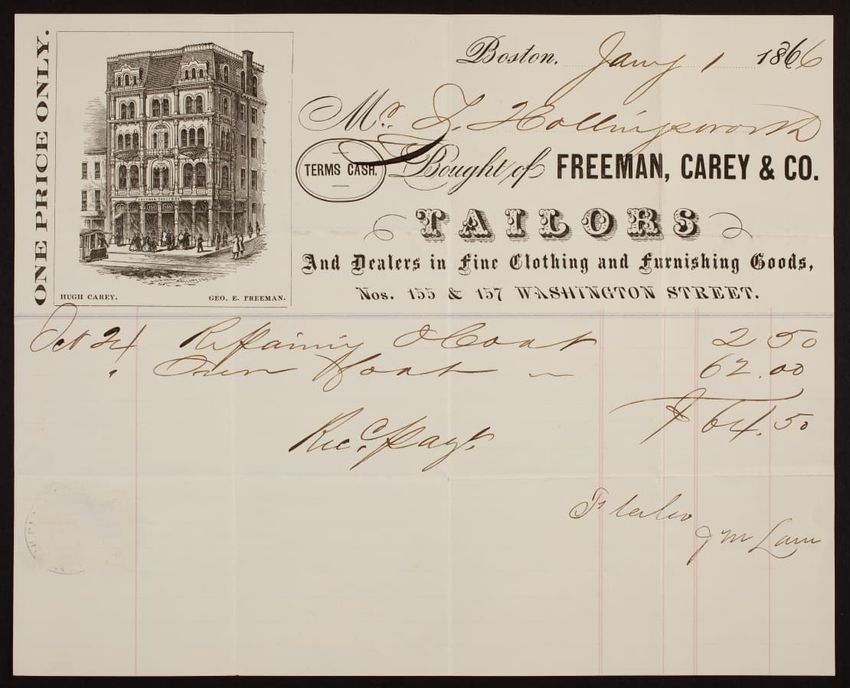 ONE PRICE ONLY.
HUGH CAREY. GEO. E. FREEMAN.
Boston, Jany 1 1866
Mr. Z. Hollingsworth
TERMS CASH. Bought of FREEMAN, CAREY & CO.
TAILORS
And Dealers in Fine Clothing and Furnishing Goods,
Nos. 155 & 157 WASHINGTON STREET.
Oct 24 Repairing O Coat 2 50
" Over Coat 62.00
$ 64.50
Recd. Payt.